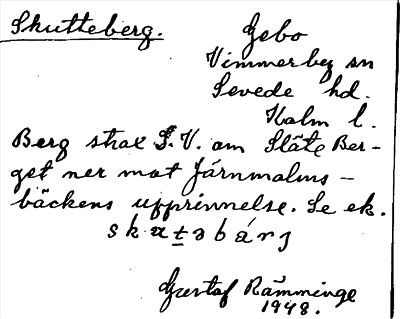 Skutteberg. Gebo
Vimmerby sn
Sevede hd.
Kalm l.
Berg strax S.V. om Släte Ber-
get ner mot Järnmalms-
bäckens upprinnelse. Se ek.
Gustaf Rämminge
1948.